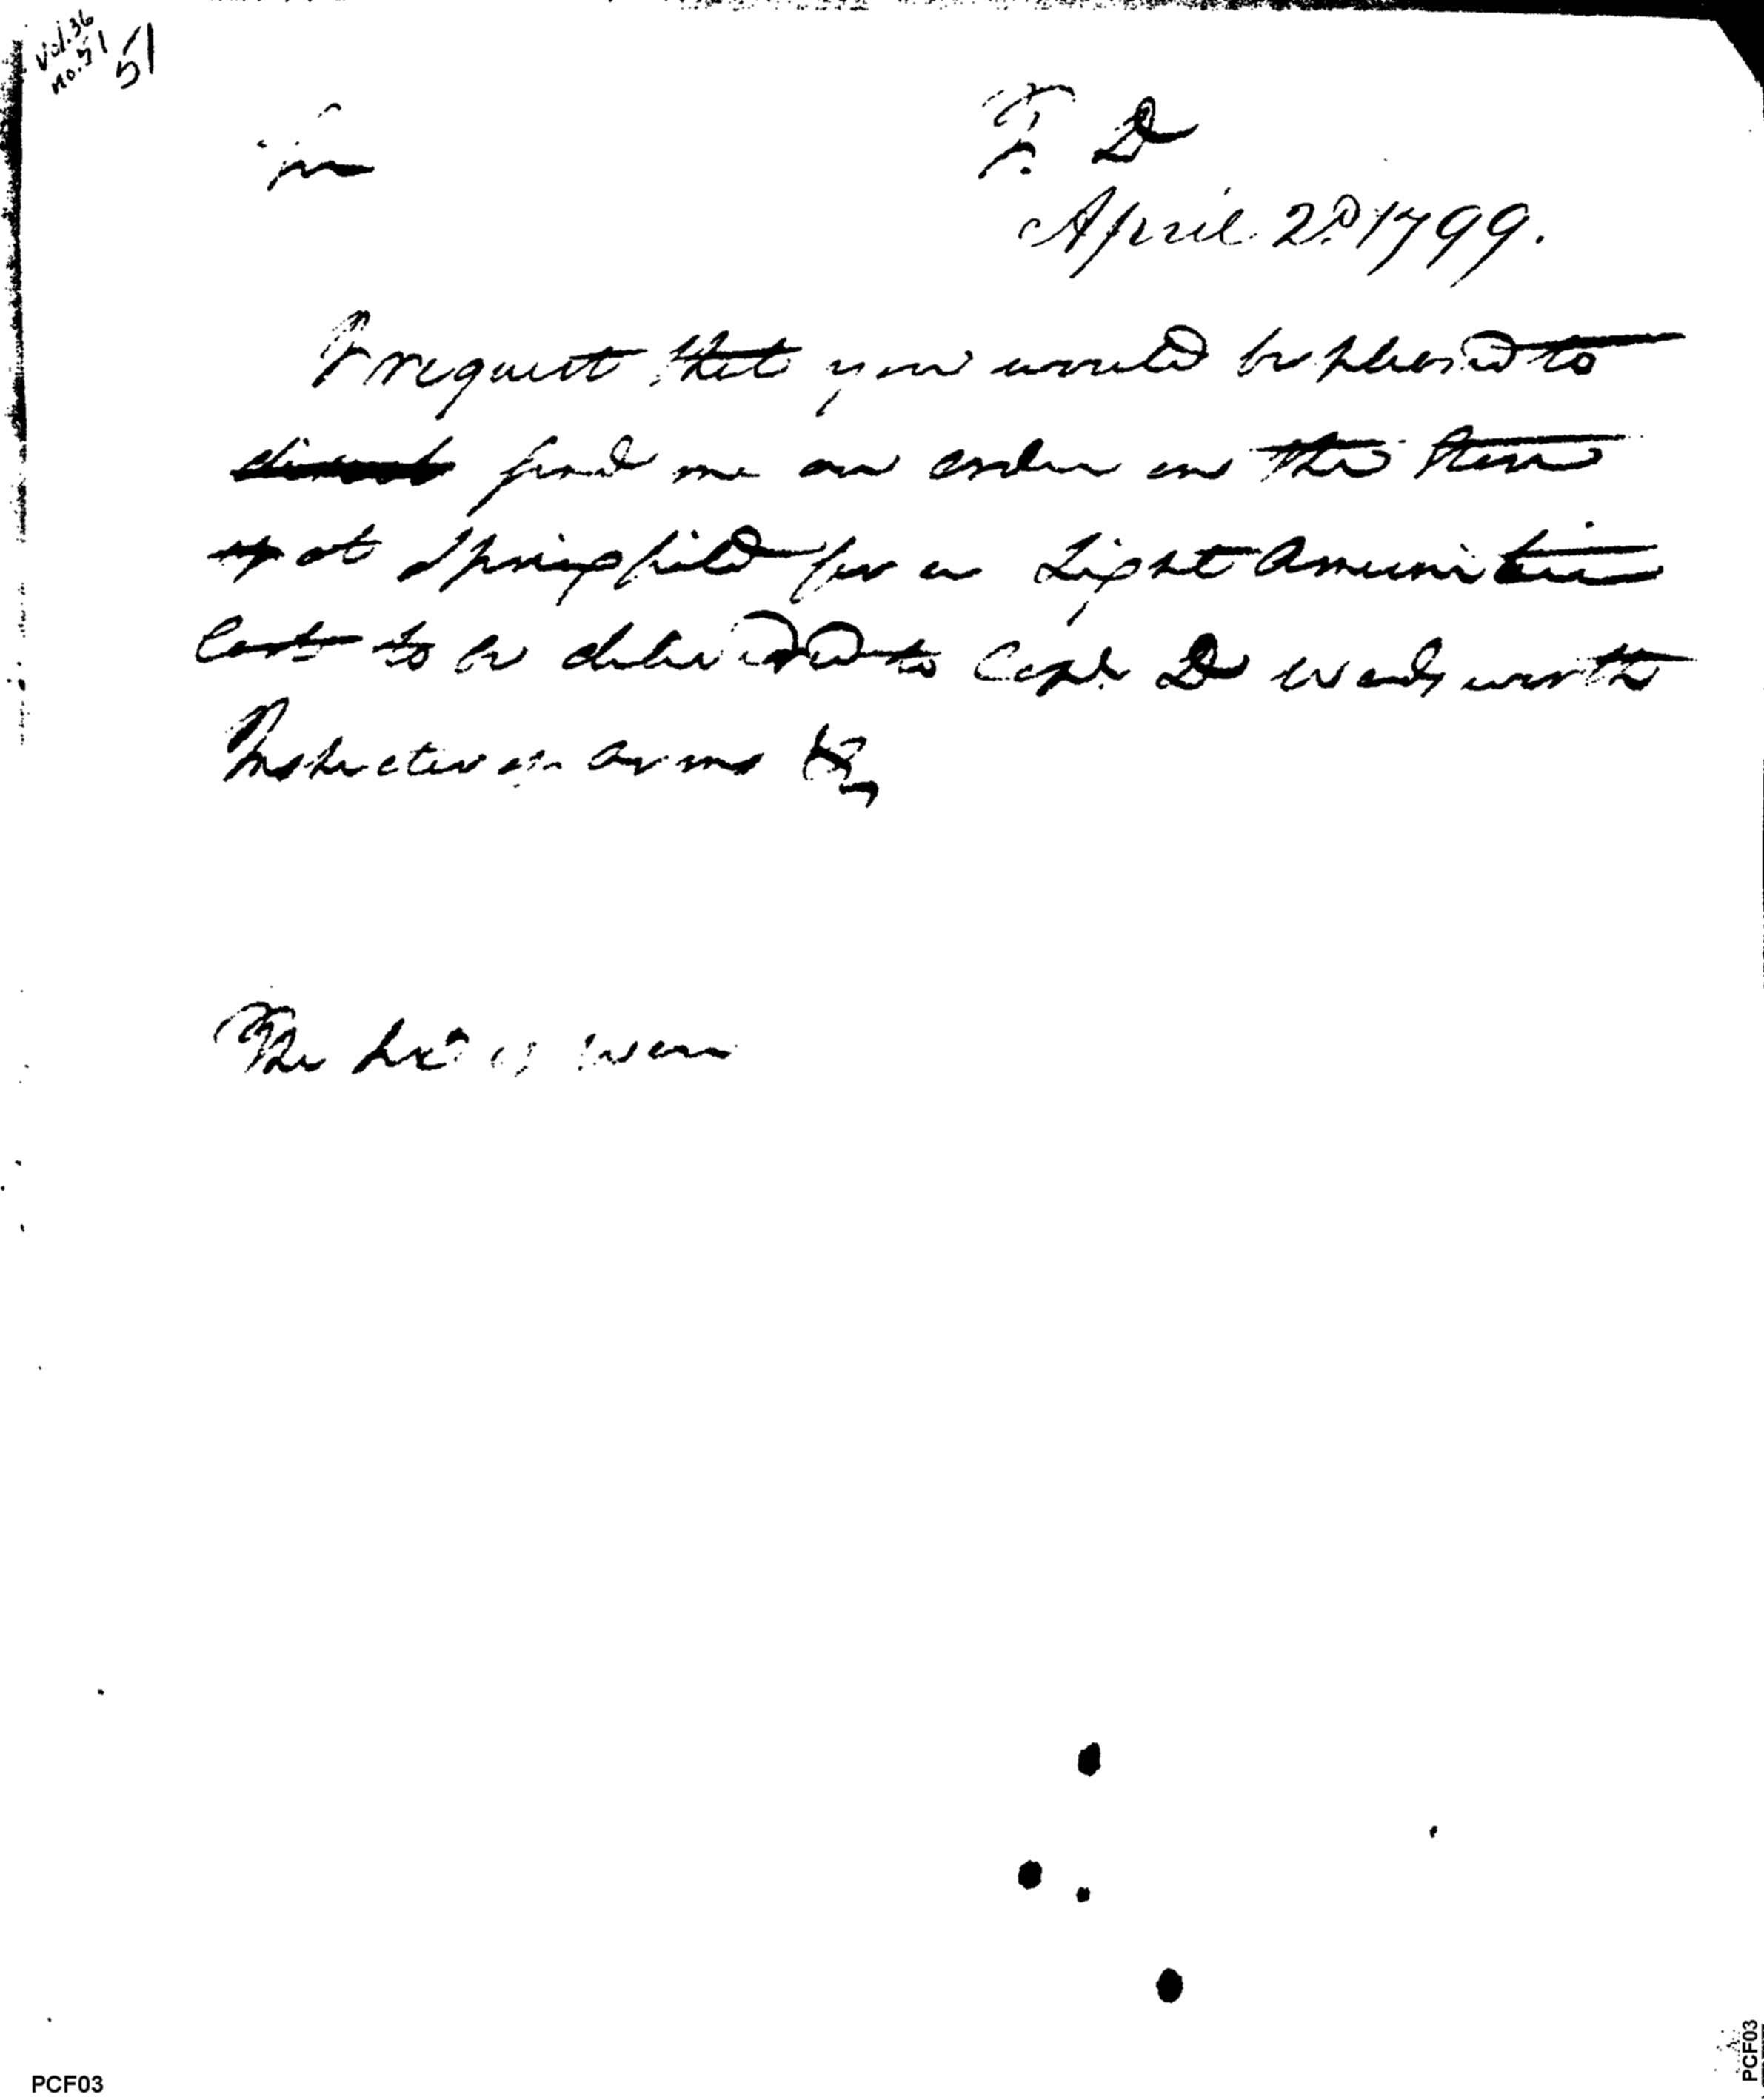 Vol. 36
No. 51
51
Sir
T. D
April 2d 1799.
I request that you would be pleased to
send me an order on the Store
at Springfield for a Light Amunition
Cart to be delivered to Capt. D Wadsworth
Inspector on arms &c
The Sec of War
PCF03
PCF03